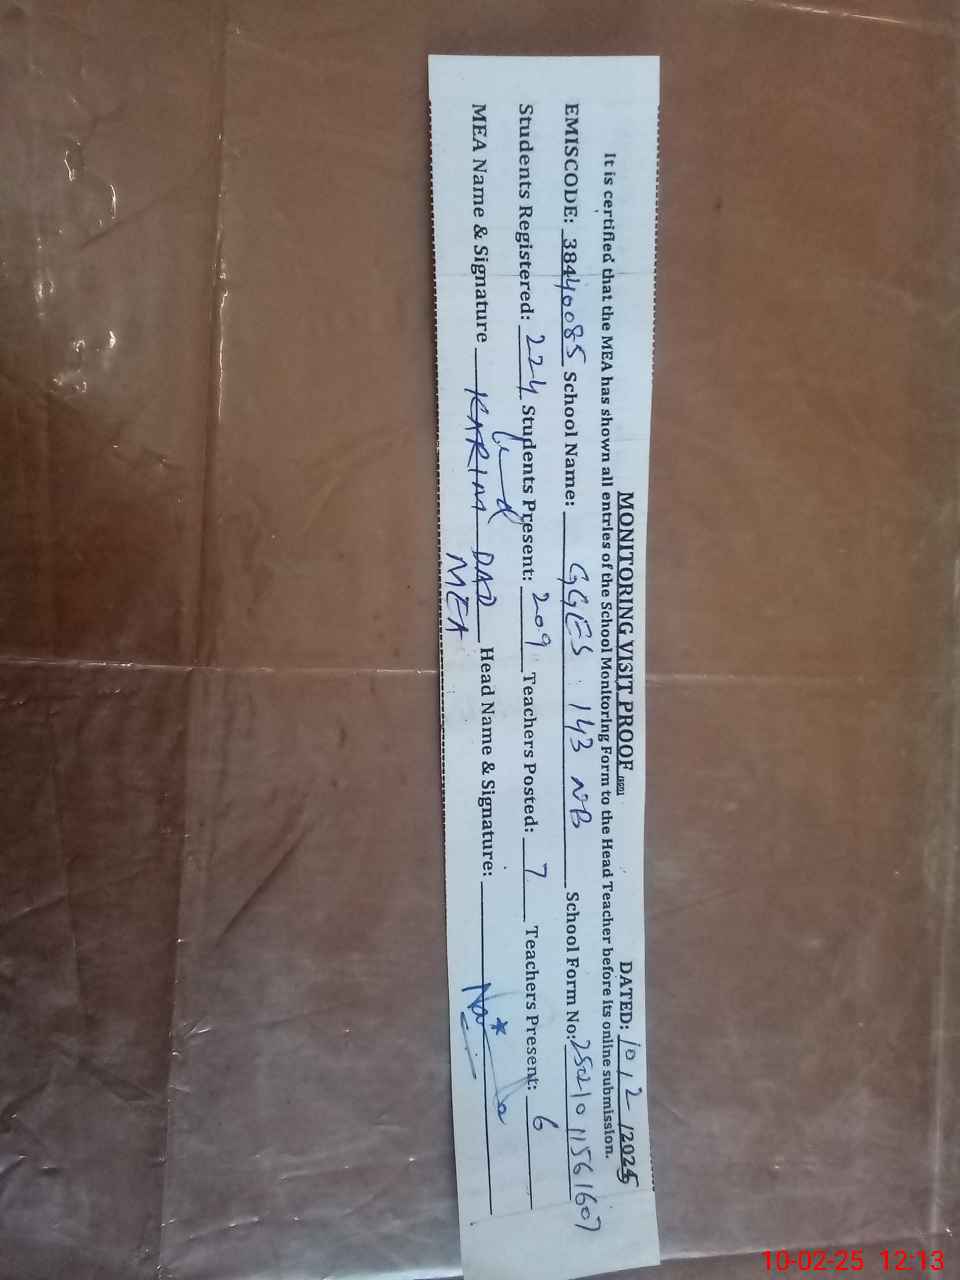 MONITORING VISIT PROOF DATED: 10/2/2025
It is certified that the MEA has shown all entries of the School Monitoring Form to the Head Teacher before its online submission.
EMISCODE: 38440085 School Name: GGES 143 NB School Form No: 25021011561607
Students Registered: 224 Students Present: 209 Teachers Posted: 7 Teachers Present: 6
MEA Name & Signature KARIM DAD Head Name & Signature:
MEA
10-02-25 12:13